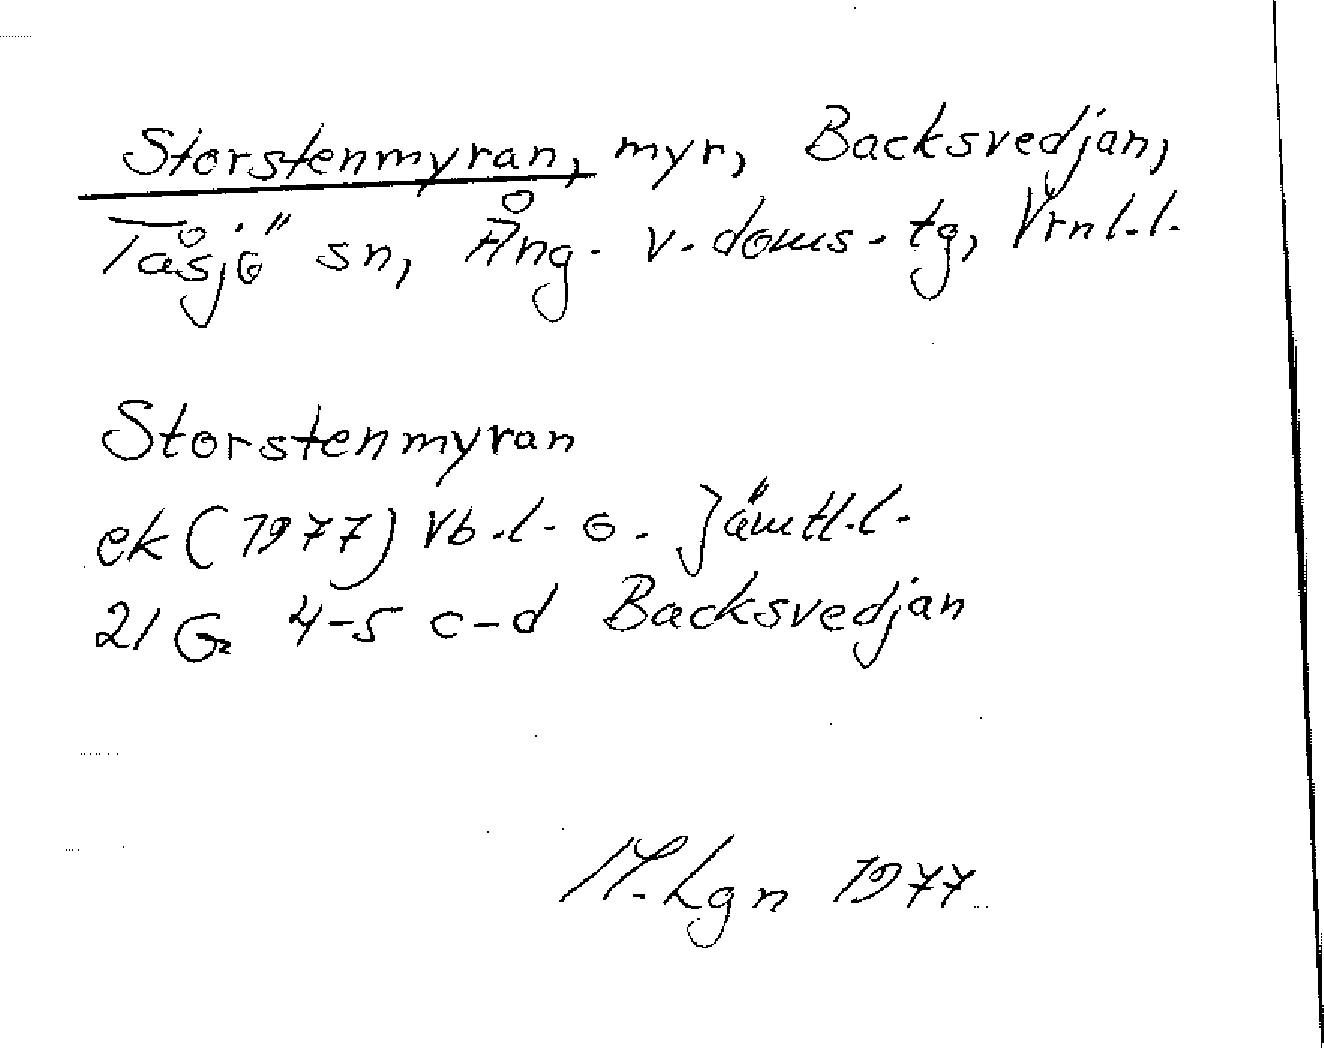 Storstenmyran, myr, Backsvedjan,
Tåsjö sn, Ång. v. doms. tg, Vrnl.l.
Storstenmyran
ek (1977) Vb.l. o. Jämtl.l.
21 G 4-5 c-d Backsvedjan
M. Lgn 1977